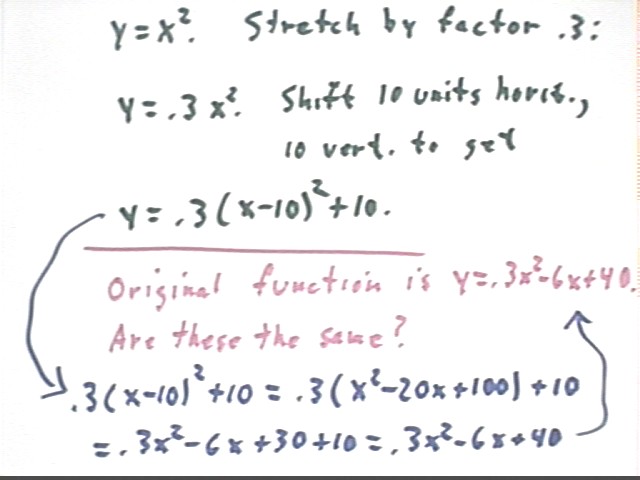 y = x². Stretch by factor .3:
y = .3 x². Shift 10 units horiz.,
10 vert. to get
y = .3(x-10)² + 10.
Original function is y = .3x²-6x+40.
Are these the same?
.3(x-10)² + 10 = .3(x²-20x+100) + 10
= .3x²-6x+30+10 = .3x²-6x+40